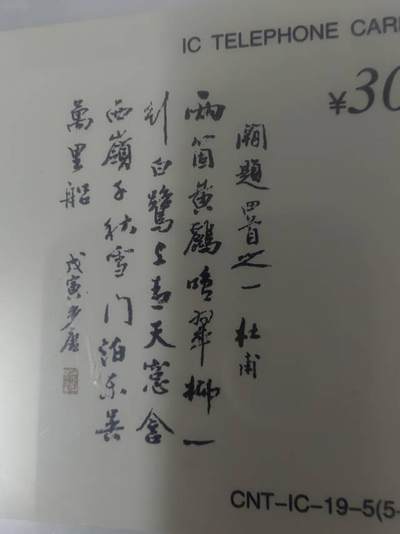 IC TELEPHONE CAR
¥30
題四首之一 杜甫
兩箇黄鸝鳴翠柳一
行白鷺上青天窓含
西嶺千秋雪门泊东吴
萬里船 戊寅
CNT-IC-19-5(5-